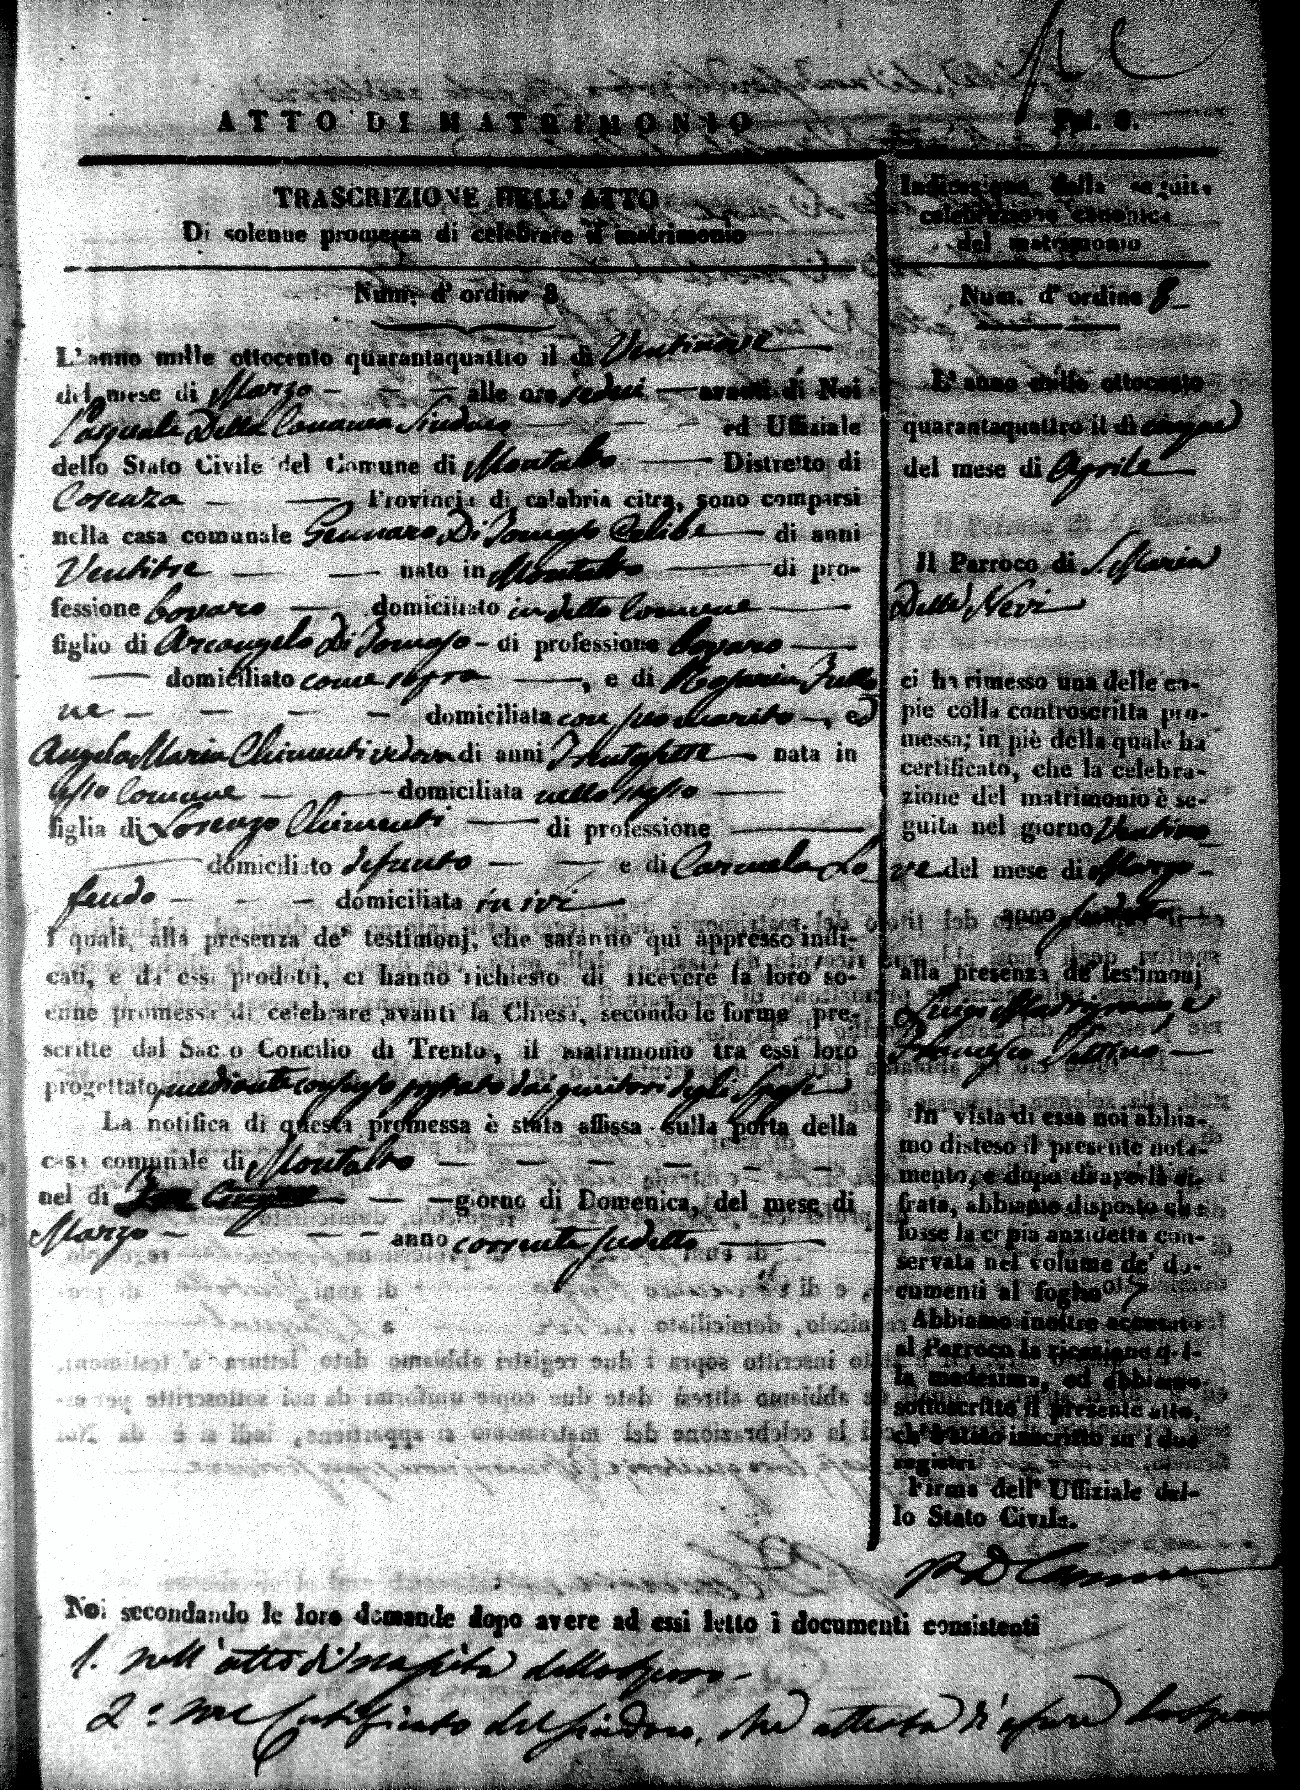 ATTO DI MATRIMONIO
Fol. 8.
TRASCRIZIONE DELL'ATTO
Di solenne promessa di celebrare il matrimonio
Num. d'ordine 8
L'anno mille ottocento quarantaquattro il dì Ventinove
del mese di Marzo alle ore sedici avanti di Noi
Pasquale Della Sindaco ed Uffiziale
dello Stato Civile del Comune di Montalto Distretto di
Cosenza Provincia di calabria citra, sono comparsi
nella casa comunale Gennaro Di Tomaso Celibe di anni
Ventitre nato in Montalto di pro-
fessione bovaro domiciliato in detto Comune
figlio di Arcangelo di Tomaso di professione bovaro
domiciliato come sopra , e di
ne domiciliata con suo marito , ed
Angela Maria Chimenti vedova di anni Trentasette nata in
esso Comune domiciliata nello stesso
figlia di Lorenzo Chimenti di professione
domiciliato defunto e di Carmela Lo
feudo domiciliata in ivi
I quali, alla presenza de' testimonj, che saranno qui appresso indi-
cati, e da essi prodotti, ci hanno richiesto di ricevere la loro so-
enne promessa di celebrare avanti la Chiesa, secondo le forme pre-
scritte dal Sacro Concilio di Trento, il matrimonio tra essi loro
progettato mediante consiglio prestato dai genitori degli Sposi
La notifica di questa promessa è stata affissa sulla porta della
casa comunale di Montalto
nel dì giorno di Domenica, del mese di
Marzo anno corrente sudetto
Noi secondando le loro domande dopo avere ad essi letto i documenti consistenti
1. nell'atto di nascita dello sposo
2.º nel Certificato del Sindaco, che attesta di essere lo sposo
Indicazione della seguita
celebrazione canonica
del matrimonio
Num. d'ordine 8
L'anno mille ottocento
quarantaquattro il dì cinque
del mese di Aprile
Il Parroco di S. Maria
Della Nevi
ci ha rimesso una delle co-
pie colla controscritta pro-
messa; in piè della quale ha
certificato, che la celebra-
zione del matrimonio è se-
guita nel giorno Ventino
ve del mese di Marzo
anno sudetto
alla presenza de' testimonj
Luigi e
Francesco
In vista di essa noi abbia-
mo disteso il presente nota-
mento, e dopo di averla ci-
frata, abbiamo disposto che
fosse la copia anzidetta con-
servata nel volume de' do-
cumenti al foglio
Abbiamo inoltre accusato
al Parroco la ricezione del-
la medesima, ed abbiamo
sottoscritto il presente atto,
ch'è stato inscritto su i due
registri
Firma dell' Uffiziale del-
lo Stato Civile.